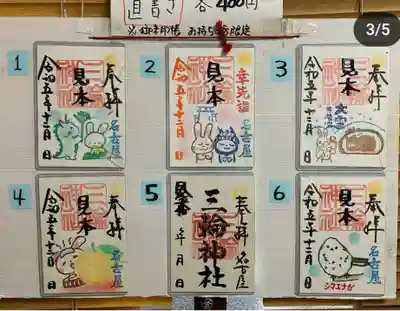 直書き 各400円
※御朱印帳 お持ちの方限定
3/5
1
奉拝
見本
令和五年十二月 日
名古屋
2
幸先詣
見本
令和五年十二月 日
名古屋
3
奉拝
見本
令和五年十二月 日
大雪
名古屋
4
奉拝
見本
令和五年十二月 日
名古屋
5
奉拝 名古屋
三輪神社
見本
年 月 日
6
奉拝
見本
令和五年十二月 日
名古屋
シマエナガ